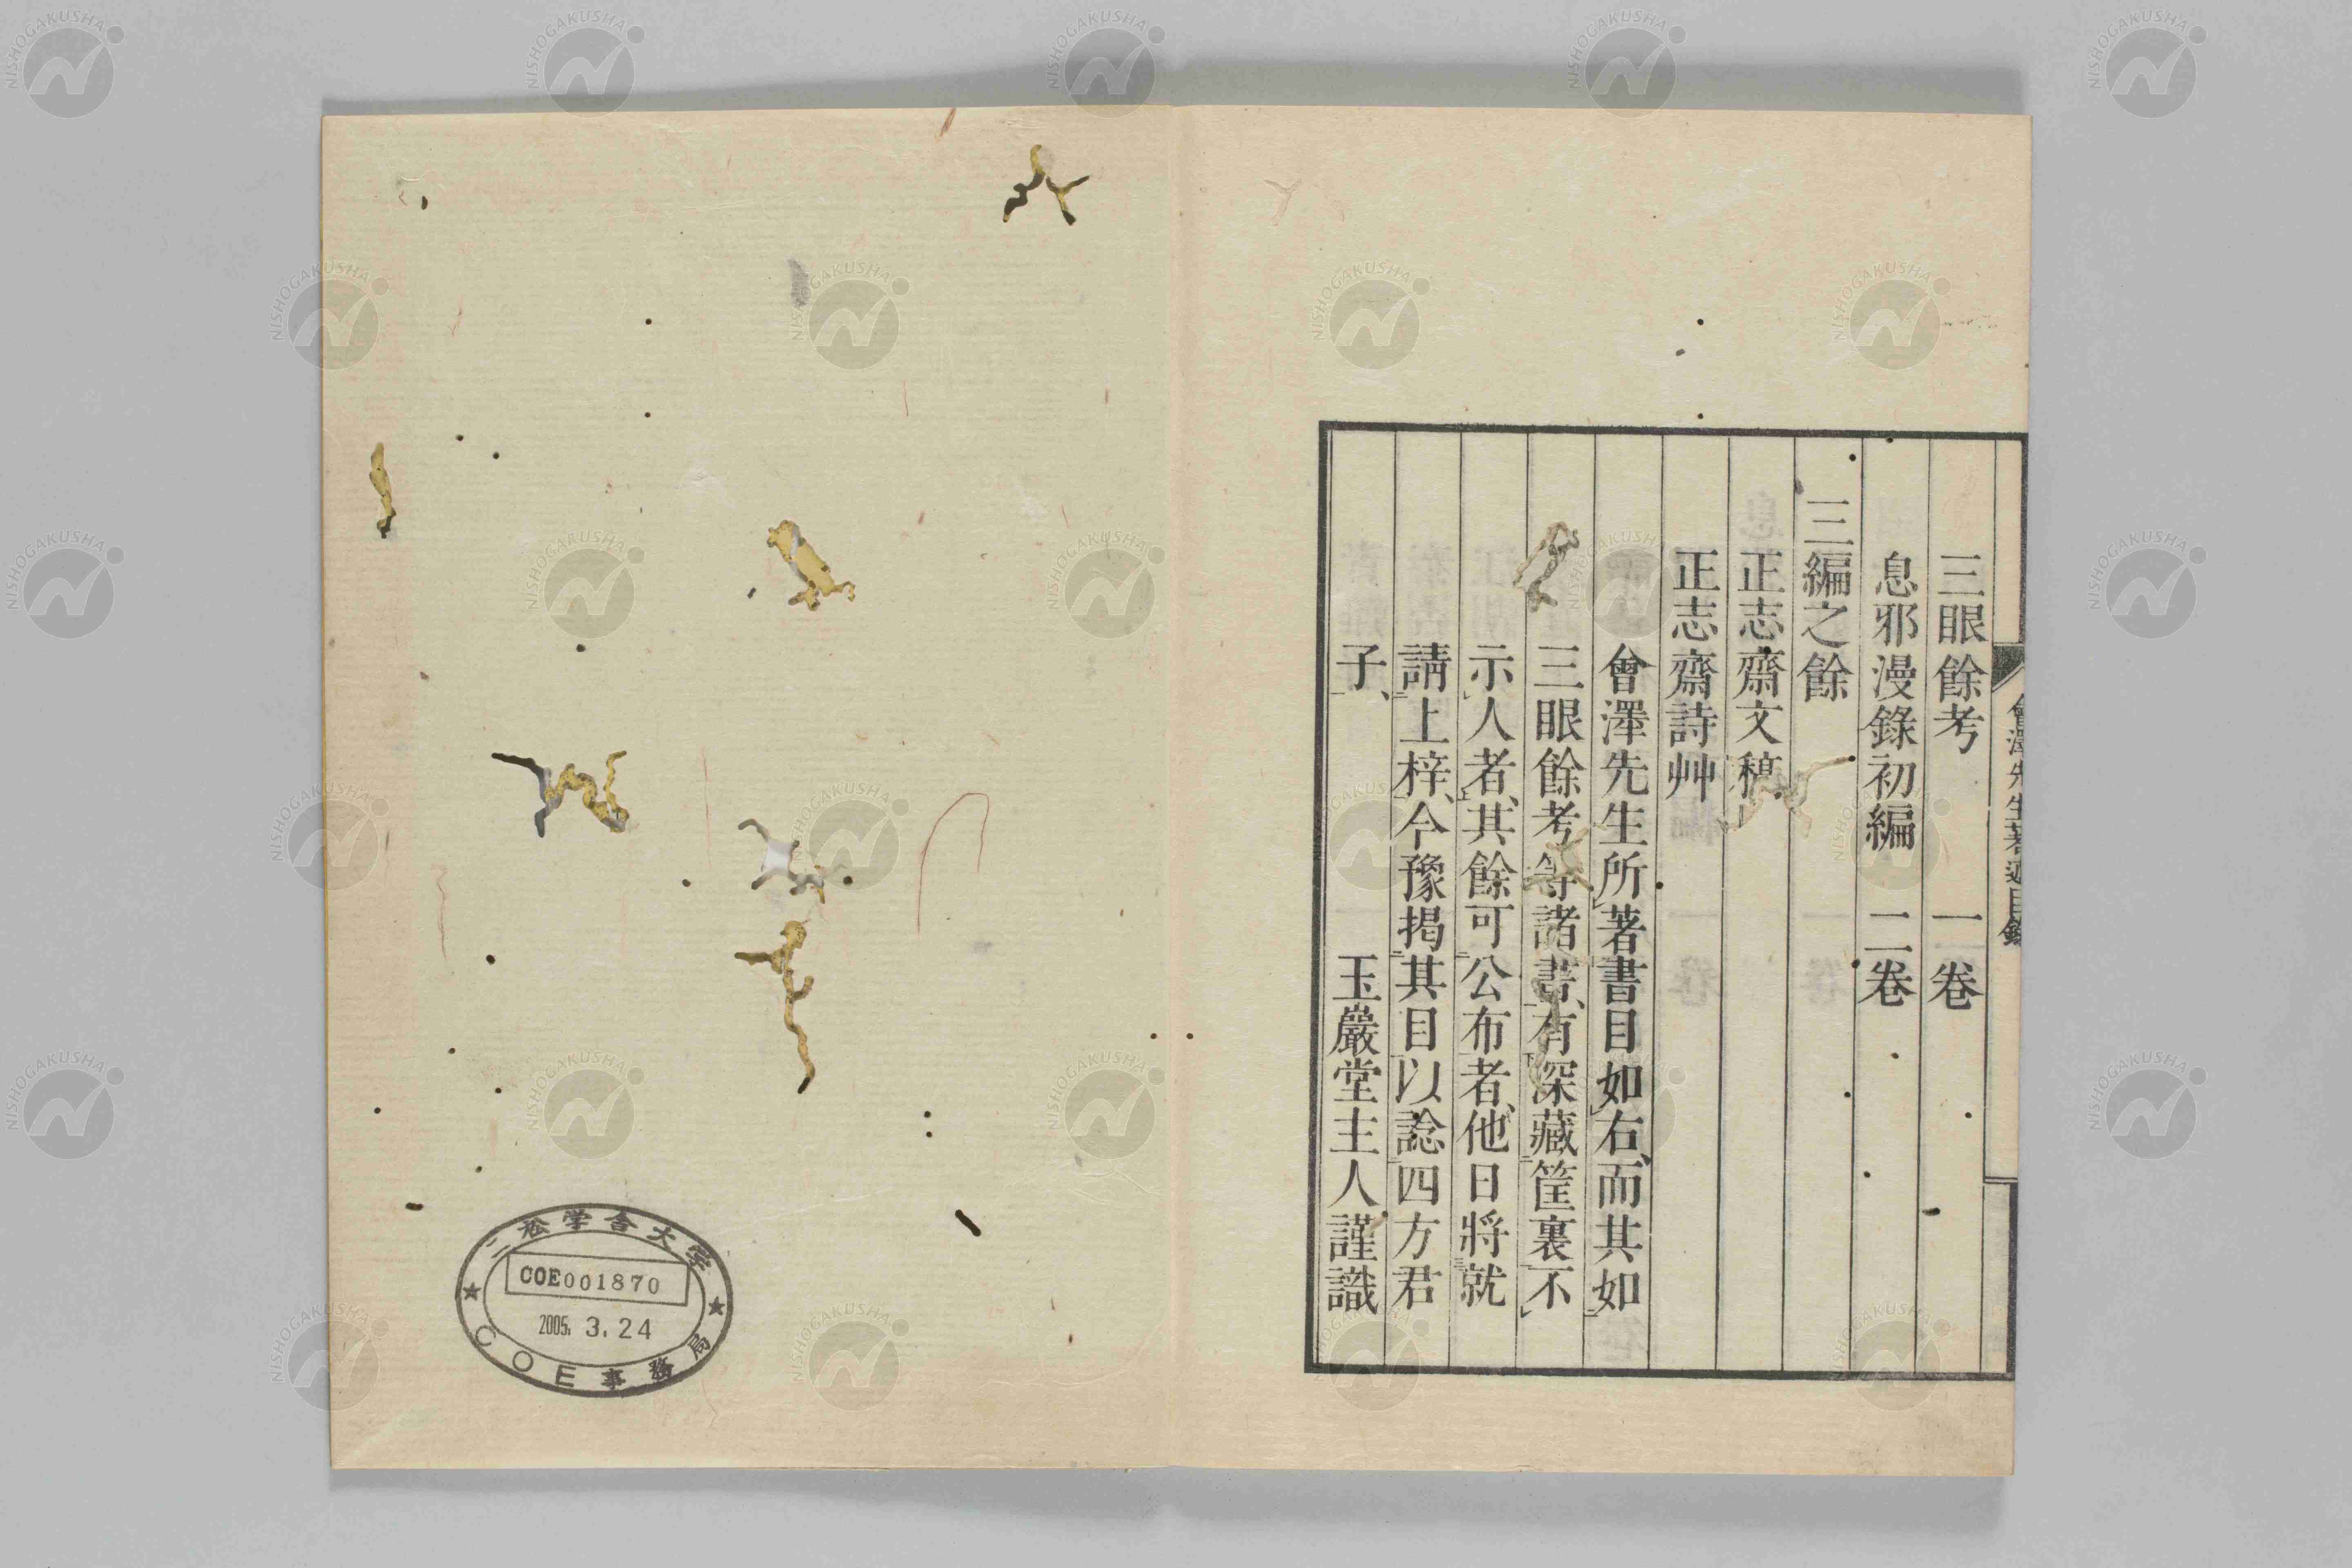 會澤先生著述目錄
三眼餘考　一卷
息邪漫錄初編　二卷
三編之餘
正志齋文稿
正志齋詩艸
會澤先生所著書目如右、而其如
三眼餘考等諸書、有深藏筐裏不
示人者、其餘可公布者、他日將就
請上梓、今豫揭其目以諗四方君
子、
玉巖堂主人謹識
二松学舎大学
COE001870
2005. 3. 24
COE事務局
NISHOGAKUSHA